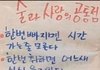 술과 사랑의 공통점
한번 빠지면 시간
가는줄 모른다
한번 취하면 어느새